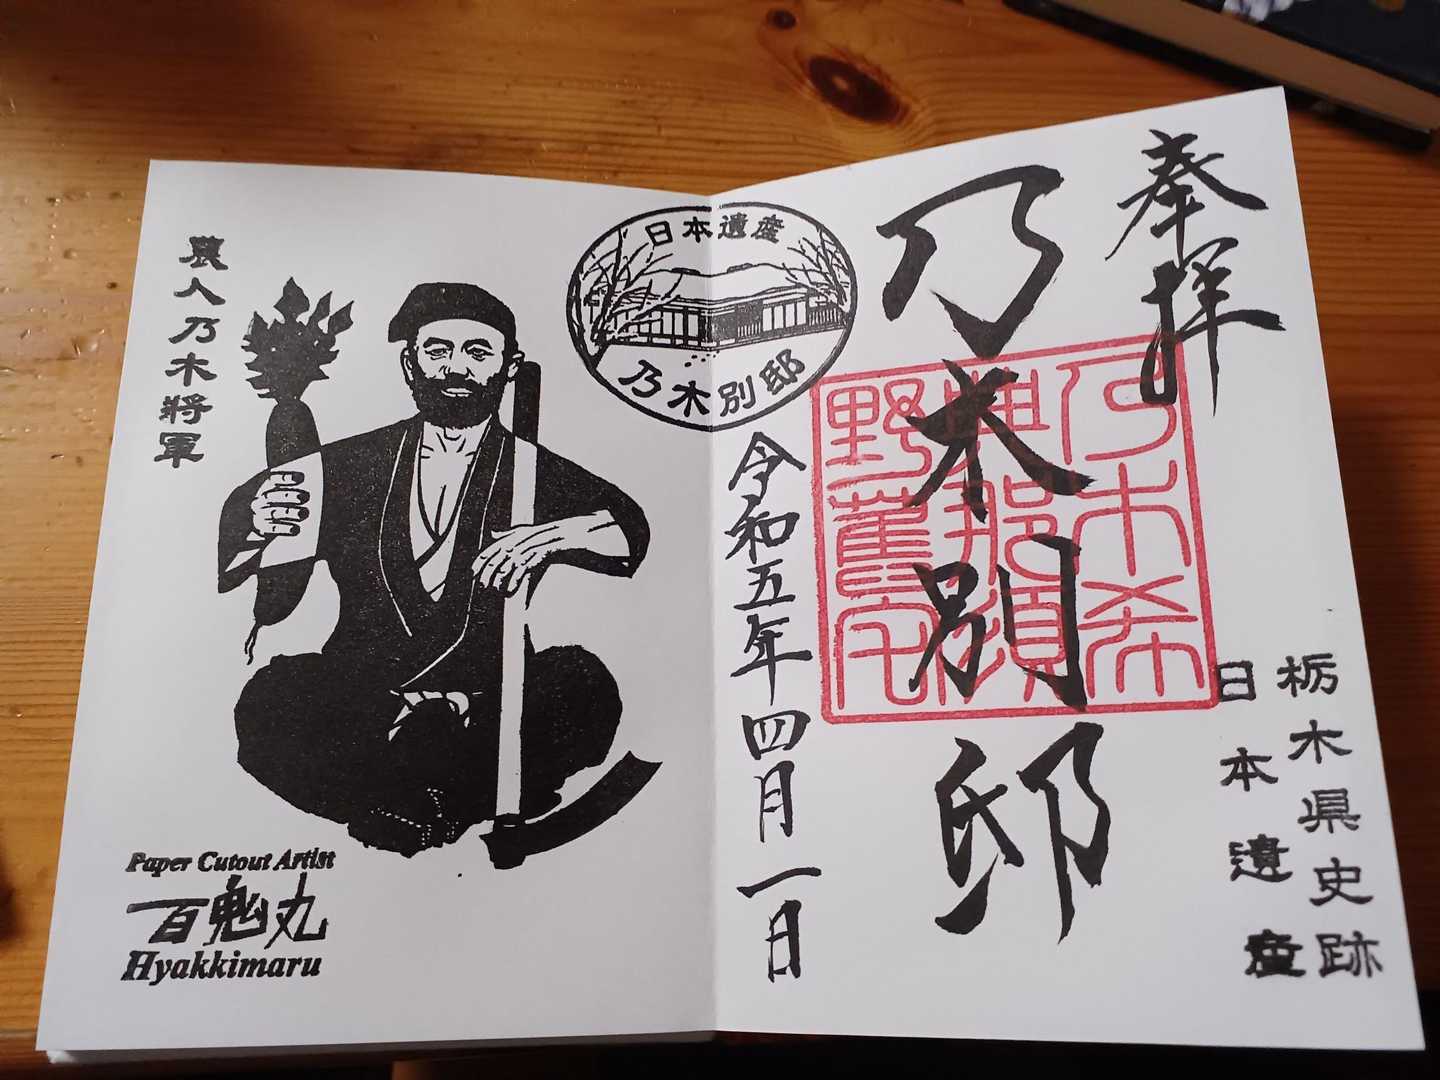 奉拝
乃木別邸
乃木希
典那須
野舊宅
栃木県史跡
日本遺産
令和五年四月一日
日本遺産
乃木別邸
農人乃木將軍
Paper Cutout Artist
百鬼丸
Hyakkimaru